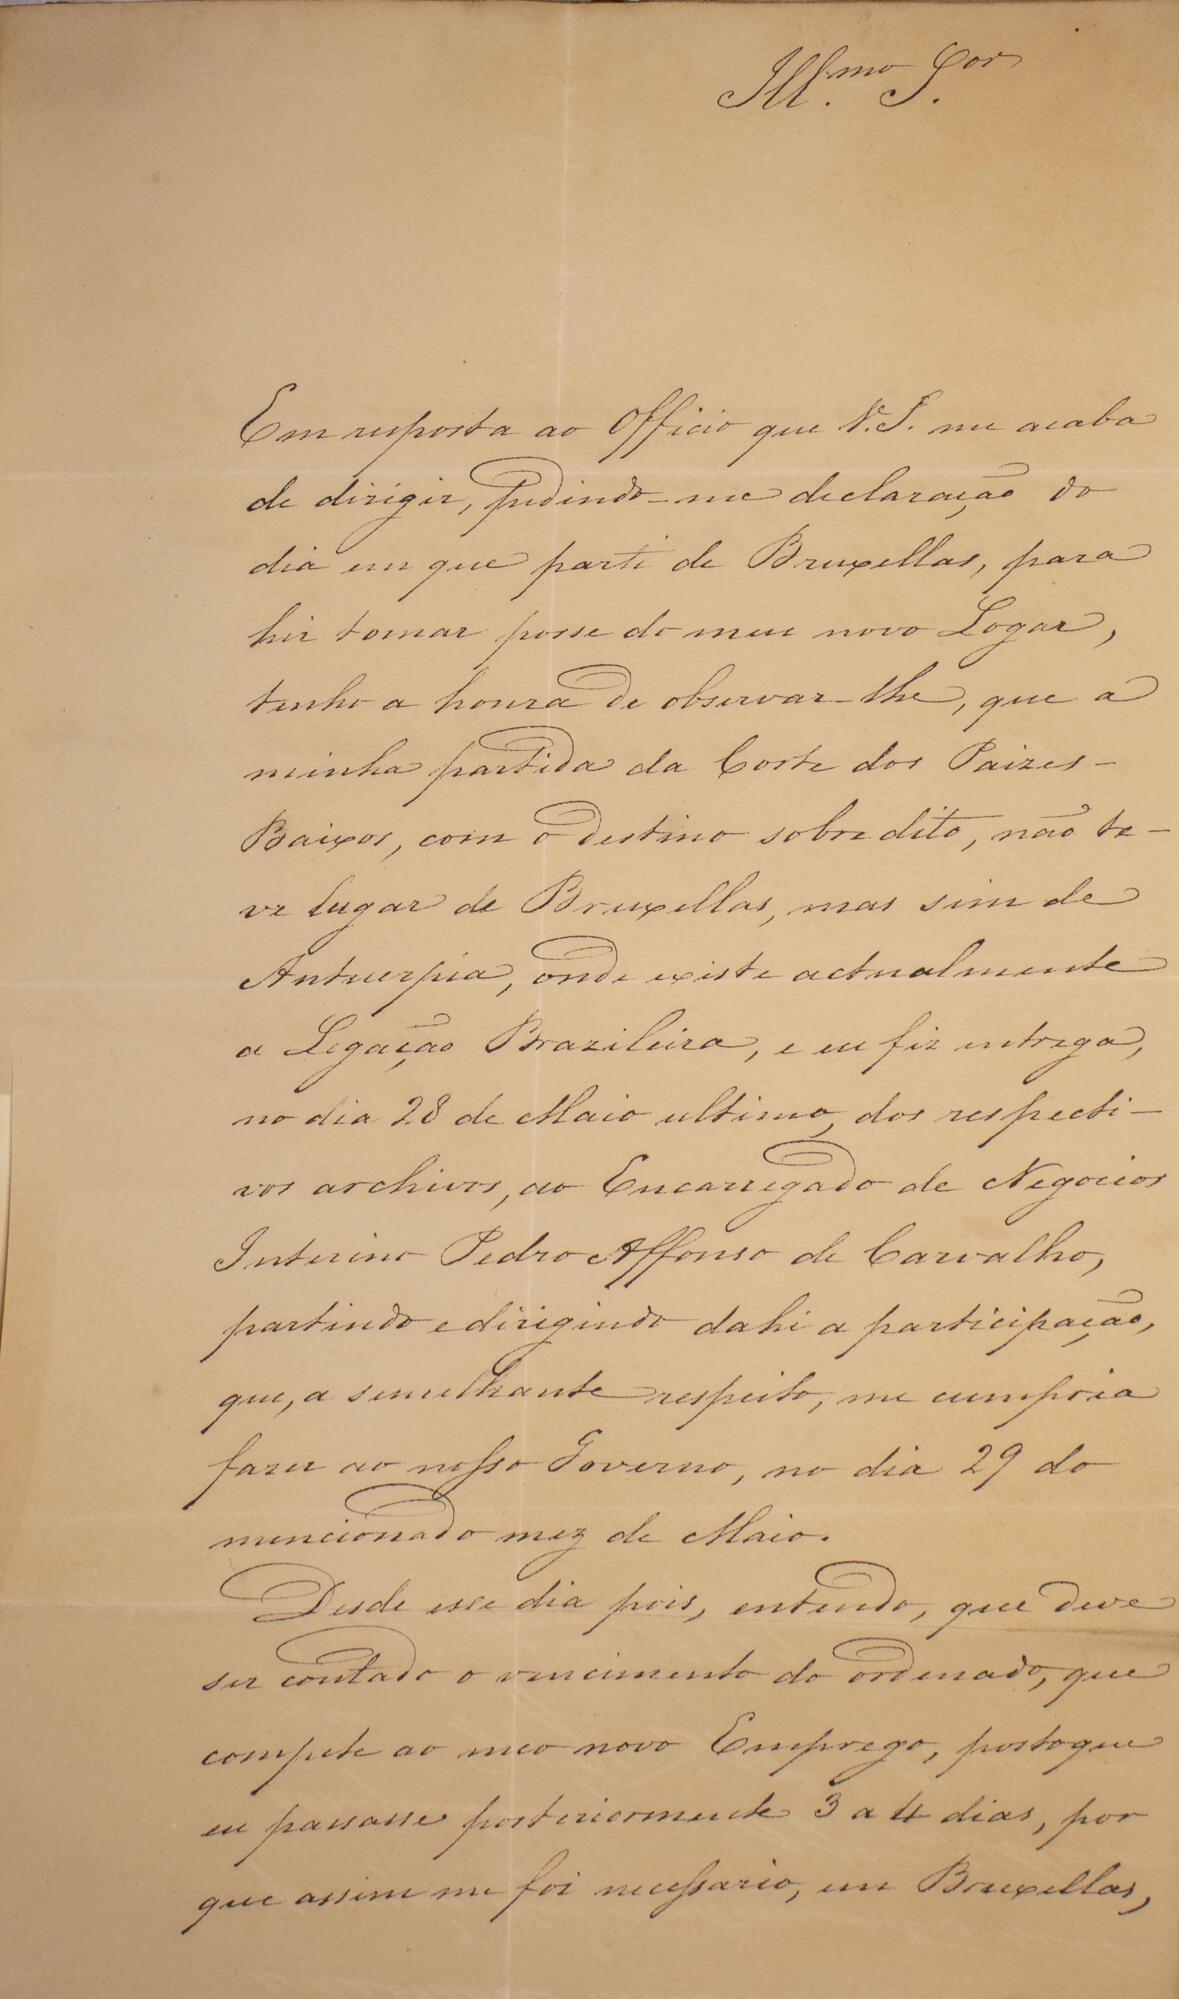 Ill.mo S.or
Em resposta ao Officio que V.S. me acaba
de dirigir, pedindo-me declaração do
dia em que parti de Bruxellas, para
hir tomar posse do meu novo Logar,
tenho a honra de observar-lhe, que a
minha partida da Corte dos Paizes-
Baixos, com o destino sobredito, não te-
ve lugar de Bruxellas, mas sim de
Antuerpia, onde existe actualmente
a Legação Brazileira, e eu fiz entrega,
no dia 28 de Maio ultimo, dos respecti-
vos archivos, ao Encarregado de Negocios
Interino Pedro Affonso de Carvalho,
partindo e dirigindo dahi a participação,
que, a semelhante respeito, me cumpria
fazer ao nosso Governo, no dia 29 do
mencionado mez de Maio.
Desde esse dia pois, entendo, que deve
ser contado o vencimento do ordenado, que
compete ao meo novo Emprego, postoque
eu passasse posteriormente 3 a 4 dias, por
que assim me foi necessario, em Bruxellas,